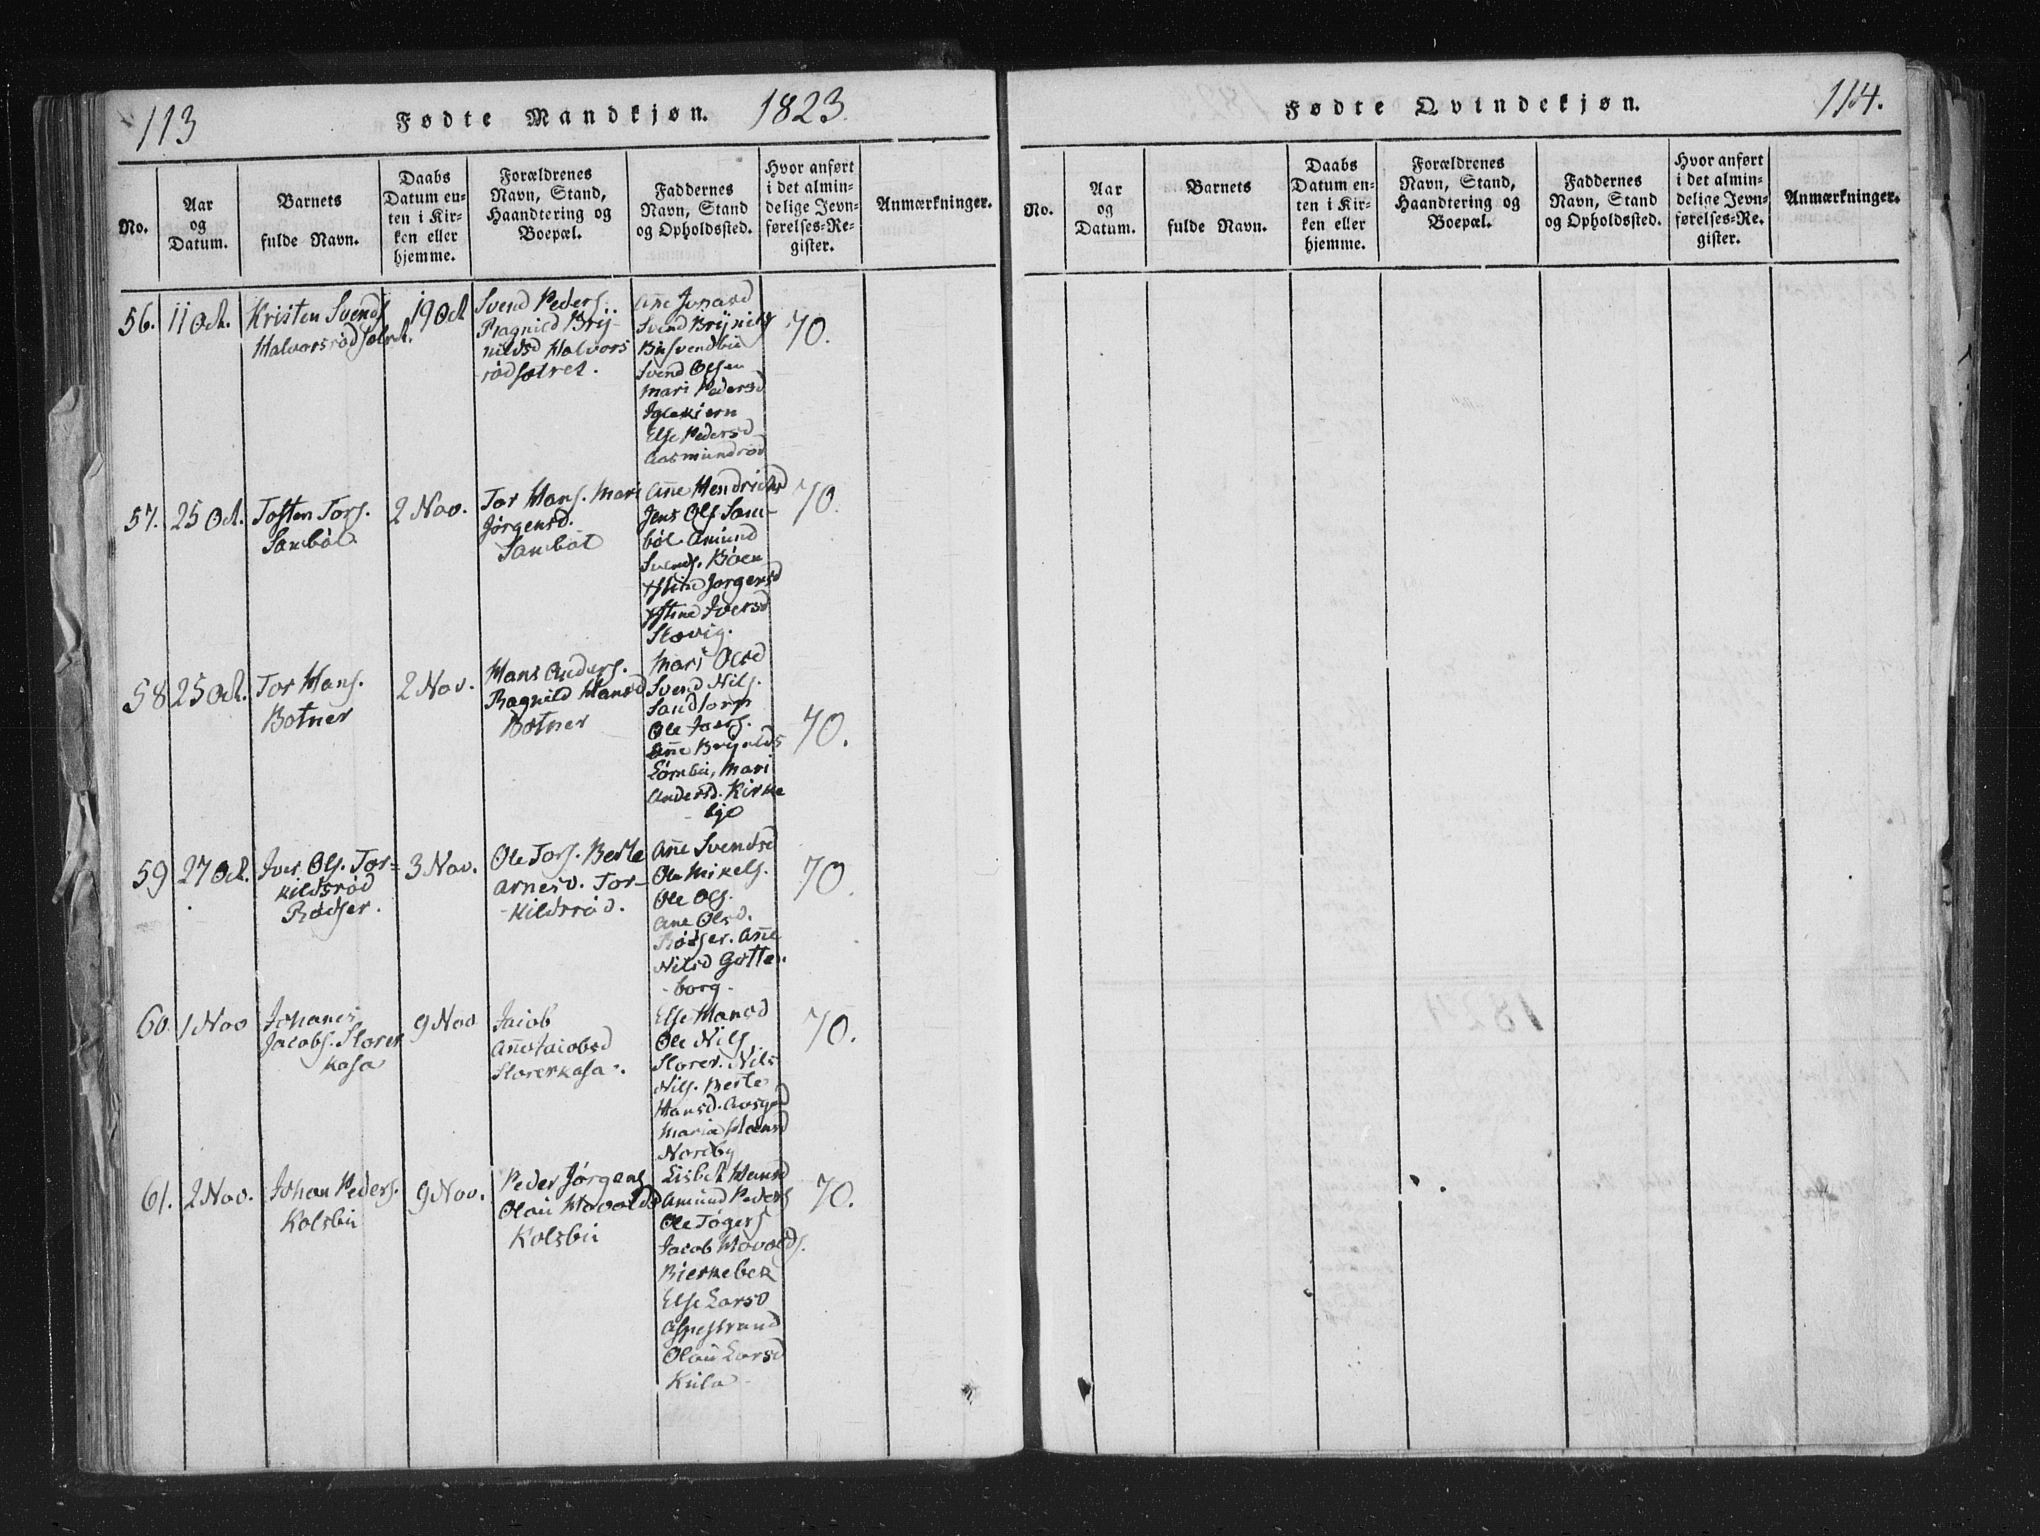 113
Fødte Mandkjøn.
1823.
No.
Aar
og
Datum.
Barnets
fulde Navn.
Daabs
Datum en-
ten i Kir-
ken eller
hjemme.
Forældrenes
Navn, Stand,
Haandtering og
Boepæl.
Faddernes
Navn, Stand
og Opholdssted.
Hvor anført
i det almin-
delige Jevn-
førelses-Re-
gister.
Anmærkninger.
56.
11 Oct.
Kristen Svends
Halvorsrødsætret.
19 Oct
Svend Peders.
Ragnild Bry-
nildsd Halvors
rødsætret.
Ane Jonasd
Svend Brynilds
Svendbu
Svend Olsen
Mari Pedersd
Iglekiern
Else Pedersd
Aasmundrød
70.
57.
25 Oct.
Tosten Tors.
Sanbøl
2 Nov.
Tor Hans. Mari
Jørgensd.
Sanbøl
Ane Hendrichsd
Jens Ols San-
bøl Amund
Svends. Bøen
Jorgensd
Iversd
Skovig.
70.
58
25 Oct.
Tor Hans.
Botner
2 Nov.
Hans Anders.
Ragnild Hansd
Botner
Mari Olsd
Svend Nils.
Sandtorp
Ole
Ane Brynilds
Lørnbu, Mari
Andersd. Kirke
bye
70.
59
27 Oct.
Iver Ols. Tor-
kildsrød
Rødser.
3 Nov.
Ole Tors. Berte
Arnesd. Tor-
kildsrød.
Ane Svendsd
Ole Mikels.
Ole Ols.
Ane Olsd.
Rødser. Ane
Nilsd Gotte-
borg.
70.
60
1 Nov
Johanes
Jacobs. Storer
kasa
9 Nov
Jacob
Ane Jacobsd
Storerkasa.
Else Hansd
Ole Nils.
Storer. Nils
Nils. Berte
Hansd. Aasgrd
Maria Hansd
Nordby
70.
61.
2 Nov.
Johan Peders.
Kolsbu
9 Nov.
Peder Jørgens
Olau Havoldsd
Kolsbu
Lisbet Hansd
Amund Peders
Ole Tøgers
Jacob Havolds.
Bierkebek
Else Larsd
Aspestrand
Olau Larsd
Kula
70.
Fødte Qvindekjøn.
114.
No.
Aar
og
Datum.
Barnets
fulde Navn.
Daabs
Datum en-
ten i Kir-
ken eller
hjemme.
Forældrenes
Navn, Stand,
Haandtering og
Boepæl.
Faddernes
Navn, Stand
og Opholdssted.
Hvor anført
i det almin-
delige Jevn-
førelses-Re-
gister.
Anmærkninger.